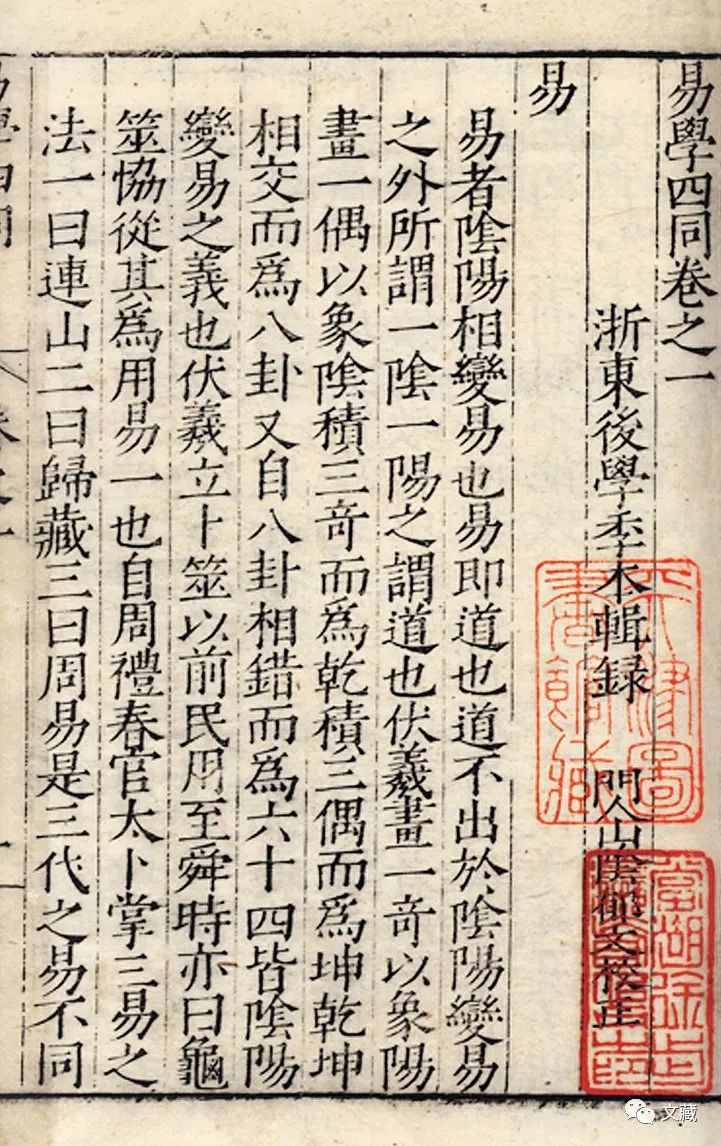 易學四同卷之一
浙東後學季本輯録 門人山陰郁文校正
易
易者陰陽相變易也易即道也道不出於陰陽變易
之外所謂一陰一陽之謂道也伏羲畫一奇以象陽
畫一偶以象陰積三奇而爲乾積三偶而爲坤乾坤
相交而爲八卦又自八卦相錯而爲六十四皆陰陽
變易之義也伏羲立卜筮以前民用至舜時亦曰龜
筮恊從其爲用易一也自周禮春官太卜掌三易之
法一曰連山二曰歸藏三曰周易是三代之易不同
易學四同
卷之一
一
天津圖書館藏
文藏